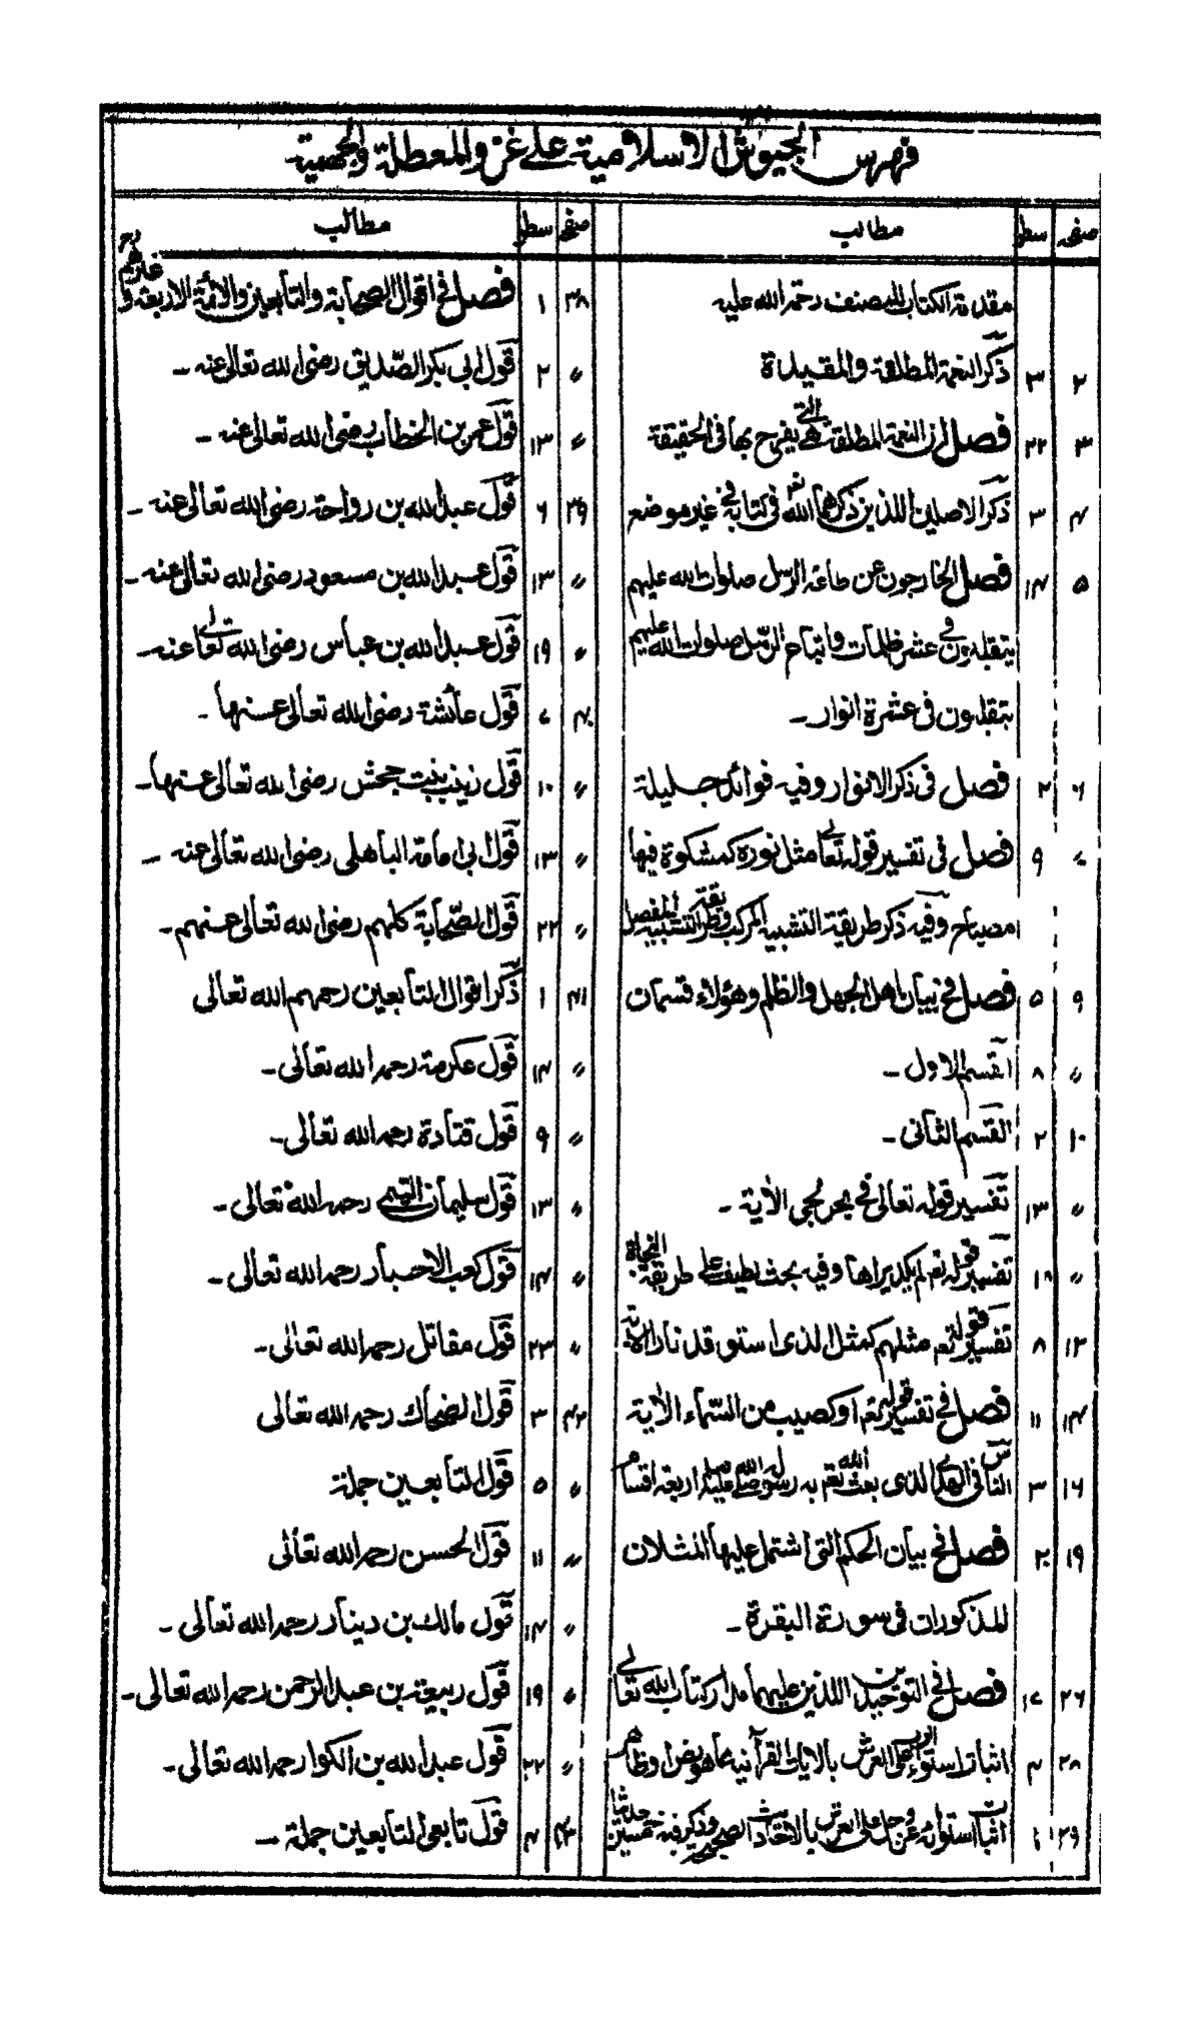 فهرس الجيوش الاسلامية على غزو المعطلة والجهمية
صفحه سطر مطالب
مقدمة الكتاب للمصنف رحمة الله عليه
٢ ٣ ذكر النعمة المطلقة والمقيدة
٣ ٢٢ فصل ان النعمة المطلقة هى التى يفرح بها فى الحقيقة
٤ ٣ ذكر الاصلين اللذين ذكرهما الله تعـ فى كتابه فى غير موضع
٥ ١٤ فصل الخارجون عن طاعة الرسل صلوات الله عليهم
يتقلبون فى عشر ظلمات واتباع الرسل صلوات الله عليهم
يتقلبون فى عشرة انوار۔
٦ ٢ فصل فى ذكر الانوار وفيه فوائد جليلة
〃 ٩ فصل فى تفسير قوله تعالى مثل نوره كمشكوة فيها
مصباح وفيه ذكر طريقة التشبيه المركب وطريقة التشبيه المفصل
٩ ٥ فصل فى بيان اهل الجهل والظلم وهؤلاء قسمان
〃 ٨ القسم الاول۔
١٠ ٢ القسم الثانى۔
〃 ١٣ تفسير قوله تعالى فى بحر لجى الأية۔
〃 ١٨ تفسير قوله تعـ لم يكد يراها وفيه بحث لطيف على طريقة النحاة
١٢ ٨ تفسير قوله تعـ مثلهم كمثل الذى استوقد نارا الاية
١٤ ١١ فصل فى تفسير قوله تعـ او كصيب من السماء الأية
١٦ ٣ الناس فى الهدى الذى بعث الله تعـ به رسوله صلى الله عليه اربعة اقسام
١٩ ٢٠ فصل فى بيان الحكم التى اشتمل عليها المثلان
المذكوران فى سورة البقرة۔
٢٦ ١٧ فصل فى التوحيدين اللذين عليهما مدار كتاب الله تعالى
٢٨ ٤ اثبات استواء الرب على العرش بالايات القرآنية
٢٩ ١ اثبات استوائه عز وجل على العرش بالاحاديث الصحيحة وذكر فيه خمسين حديثا
صفحه سطر مطالب
٣٨ ١ فصل فى اقوال الصحابة والتابعين والائمة الاربعة وغيرهم
〃 ٢ قول ابى بكر الصديق رضى الله تعالى عنه۔
〃 ١٣ قول عمر بن الخطاب رضى الله تعالى عنه۔
٣٩ ٦ قول عبد الله بن رواحة رضى الله تعالى عنه۔
〃 ١٣ قول عبد الله بن مسعود رضى الله تعالى عنه۔
〃 ١٩ قول عبد الله بن عباس رضى الله تعالى عنه۔
٤٠ ٧ قول عائشة رضى الله تعالى عنها۔
〃 ١٠ قول زينب بنت جحش رضى الله تعالى عنها۔
〃 ١٣ قول ابى امامة الباهلى رضى الله تعالى عنه۔
〃 ٢٢ قول الصحابة كلهم رضى الله تعالى عنهم۔
٤١ ١ ذكر اقوال التابعين رحمهم الله تعالى
〃 ١٤ قول عكرمة رحمه الله تعالى۔
〃 ٩ قول قتادة رحمه الله تعالى۔
〃 ١٣ قول سليمان التيمى رحمه الله تعالى۔
〃 ١٤ قول كعب الاحبار رحمه الله تعالى۔
〃 ٢٣ قول مقاتل رحمه الله تعالى۔
٤٢ ٣ قول الضحاك رحمه الله تعالى
〃 ٥ قول التابعين جملة
〃 ١١ قول الحسن رحمه الله تعالى
〃 ١٤ قول مالك بن دينار رحمه الله تعالى۔
〃 ١٩ قول ربيعة بن عبد الرحمن رحمه الله تعالى۔
〃 ٢٢ قول عبد الله بن الكوا رحمه الله تعالى۔
٤٣ ٤ قول تابعى التابعين جملة۔